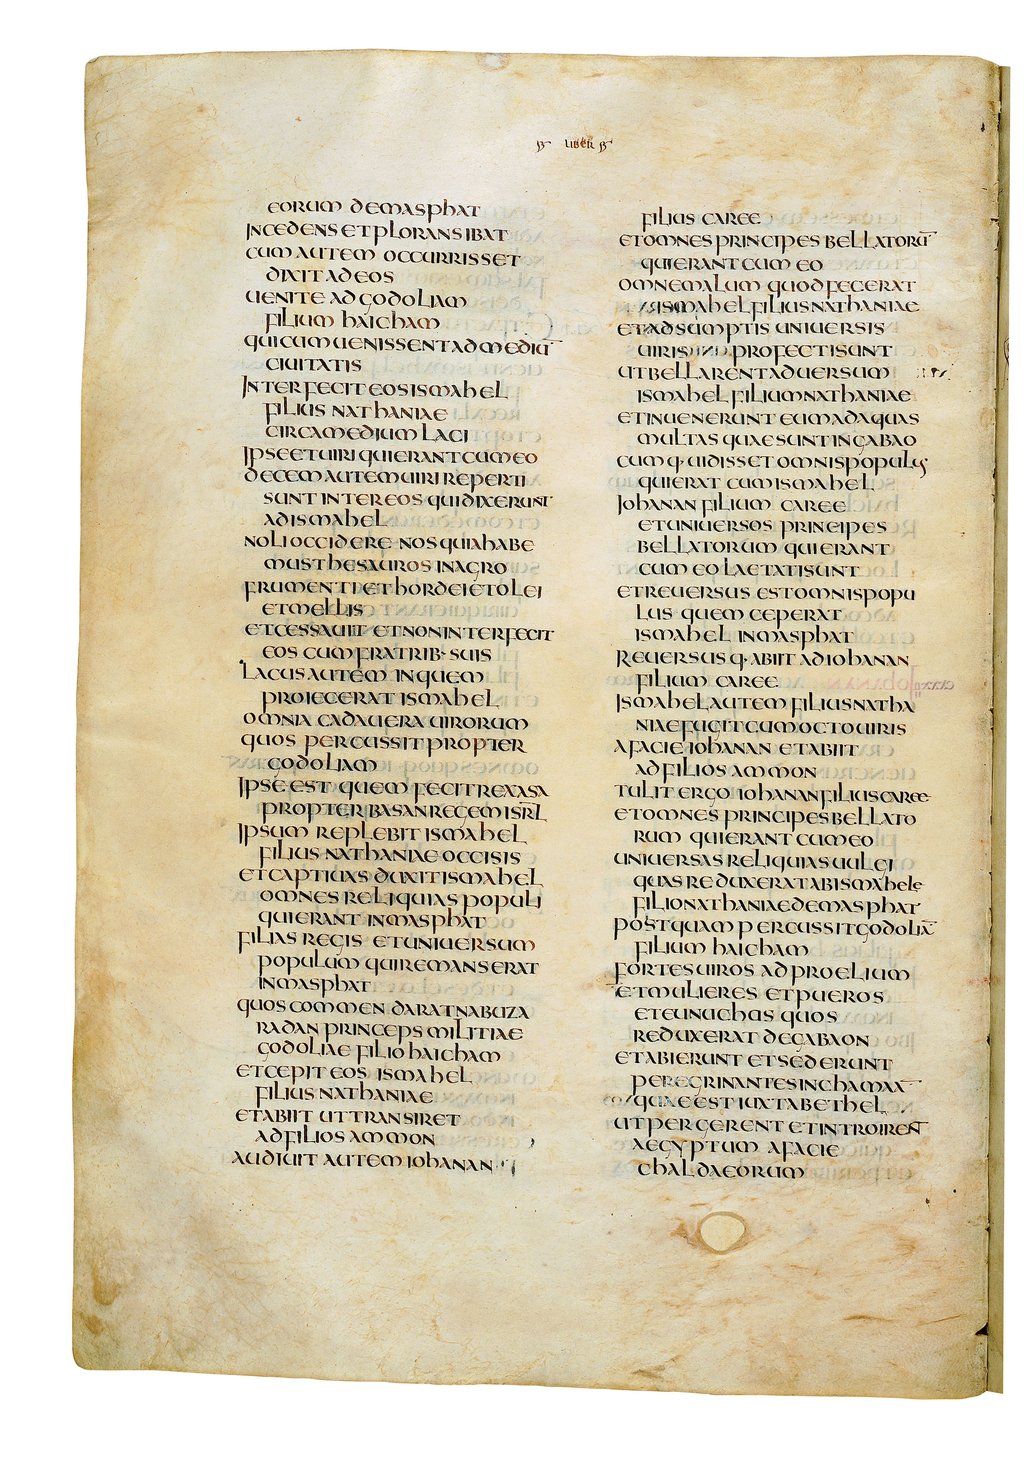 LIBER
EORUM DEMASPHAT
INCEDENS ET PLORANS IBAT
CUM AUTEM OCCURRISSET
DIXIT AD EOS
UENITE AD GODOLIAM
FILIUM HAICHAM
QUI CUM UENISSENT AD MEDIŪ
CIUITATIS
INTERFECIT EOS ISMAHEL
FILIUS NATHANIAE
CIRCA MEDIUM LACI
IPSE ET UIRI QUI ERANT CUM EO
DECEM AUTEM UIRI REPERTI
SUNT INTER EOS QUI DIXERUNT
AD ISMAHEL
NOLI OCCIDERE NOS QUIA HABE
MUS THESAUROS IN AGRO
FRUMENTI ET HORDEI ET OLEI
ET MELLIS
ET CESSAUIT ET NON INTERFECIT
EOS CUM FRATRIB· SUIS
LACUS AUTEM IN QUEM
PROIECERAT ISMAHEL
OMNIA CADAUERA UIRORUM
QUOS PERCUSSIT PROPTER
GODOLIAM
IPSE EST QUEM FECIT REX ASA
PROPTER BASAN REGEM ISRL̄
IPSUM REPLEBIT ISMAHEL
FILIUS NATHANIAE OCCISIS
ET CAPTIUAS DUXIT ISMAHEL
OMNES RELIQUIAS POPULI
QUI ERANT IN MASPHAT
FILIAS REGIS ET UNIUERSUM
POPULUM QUI REMANSERAT
IN MASPHAT
QUOS COMMENDARAT NABUZA
RADAN PRINCEPS MILITIAE
GODOLIAE FILIO HAICHAM
ET CEPIT EOS ISMAHEL
FILIUS NATHANIAE
ET ABIIT UT TRANSIRET
AD FILIOS AMMON
AUDIUIT AUTEM IOHANAN
FILIUS CAREE
ET OMNES PRINCIPES BELLATORŪ
QUI ERANT CUM EO
OMNE MALUM QUOD FECERAT
ISMAHEL FILIUS NATHANIAE
ET ADSUMPTIS UNIUERSIS
UIRIS PROFECTI SUNT
UT BELLARENT ADUERSUM
ISMAHEL FILIUM NATHANIAE
ET INUENERUNT EUM AD AQUAS
MULTAS QUAE SUNT IN GABAO
CUM Q· UIDISSET OMNIS POPULUS
QUI ERAT CUM ISMAHEL
IOHANAN FILIUM CAREE
ET UNIUERSOS PRINCIPES
BELLATORUM QUI ERANT
CUM EO LAETATI SUNT
ET REUERSUS EST OMNIS POPU
LUS QUEM CEPERAT
ISMAHEL IN MASPHAT
REUERSUS Q· ABIIT AD IOHANAN
FILIUM CAREE
ISMAHEL AUTEM FILIUS NATHA
NIAE FUGIT CUM OCTO UIRIS
A FACIE IOHANAN ET ABIIT
AD FILIOS AMMON
TULIT ERGO IOHANAN FILIUS CAREE
ET OMNES PRINCIPES BELLATO
RUM QUI ERANT CUM EO
UNIUERSAS RELIQUIAS UULGI
QUAS REDUXERAT AB ISMAHELE
FILIO NATHANIAE DE MASPHAT
POSTQUAM PERCUSSIT GODOLIĀ
FILIUM HAICHAM
FORTES UIROS AD PROELIUM
ET MULIERES ET PUEROS
ET EUNUCHUS QUOS
REDUXERAT DE GABAON
ET ABIERUNT ET SEDERUNT
PEREGRINANTES IN CHAMAX
QUAE EST IUXTA BETHEL
UT PERGERENT ET INTROIRENT
AEGYPTUM A FACIE
CHALDAEORUM